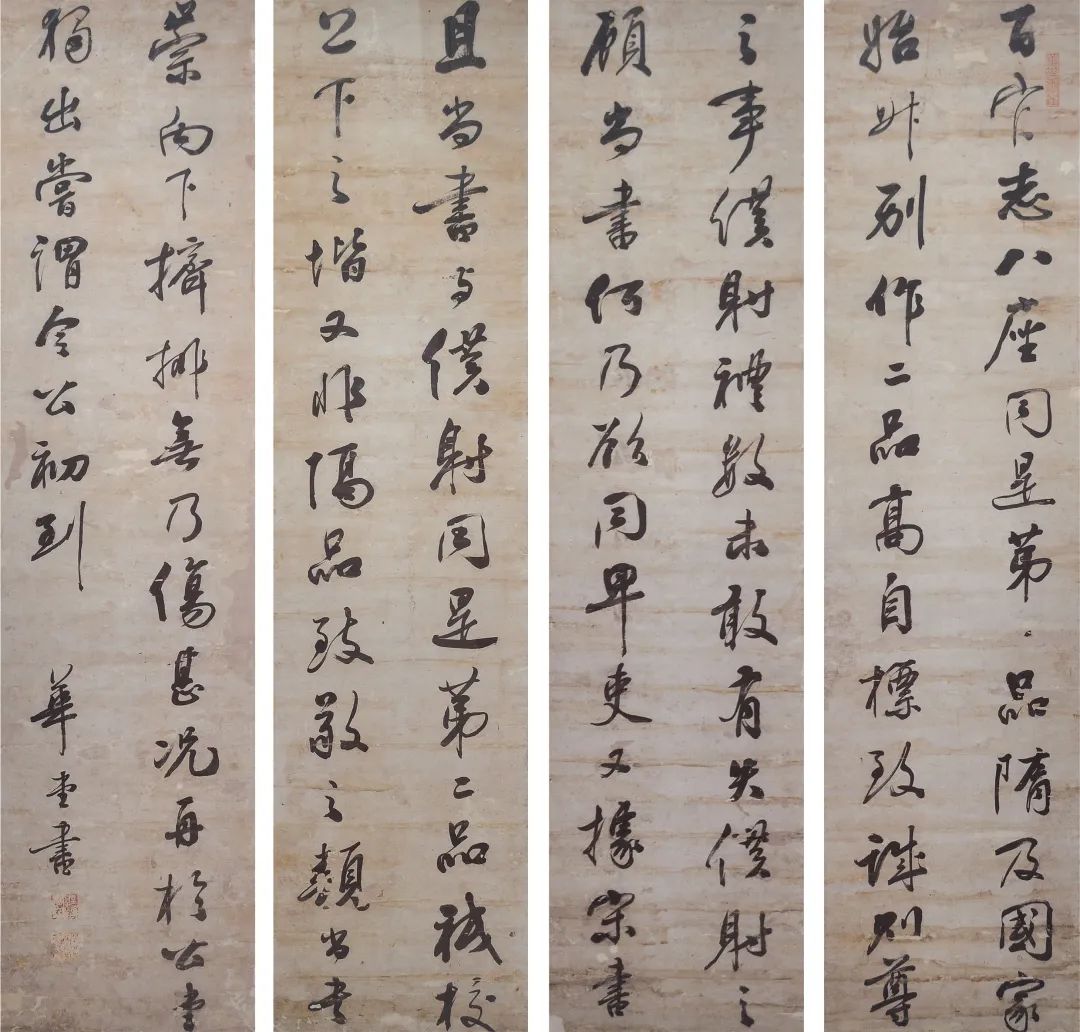 百官志八座同是第品隋及國家
始升別作二品高自標致誠則尊
之事僕射禮數未敢有失僕射之
顧尚書何乃欲同卑吏又據宋書
且尚書与僕射同是第二品秪校
上下之階又非隔品致敬之類尚書
崇向下擠排無乃傷甚況再於公堂
獨出嘗謂令公初到
華堂書